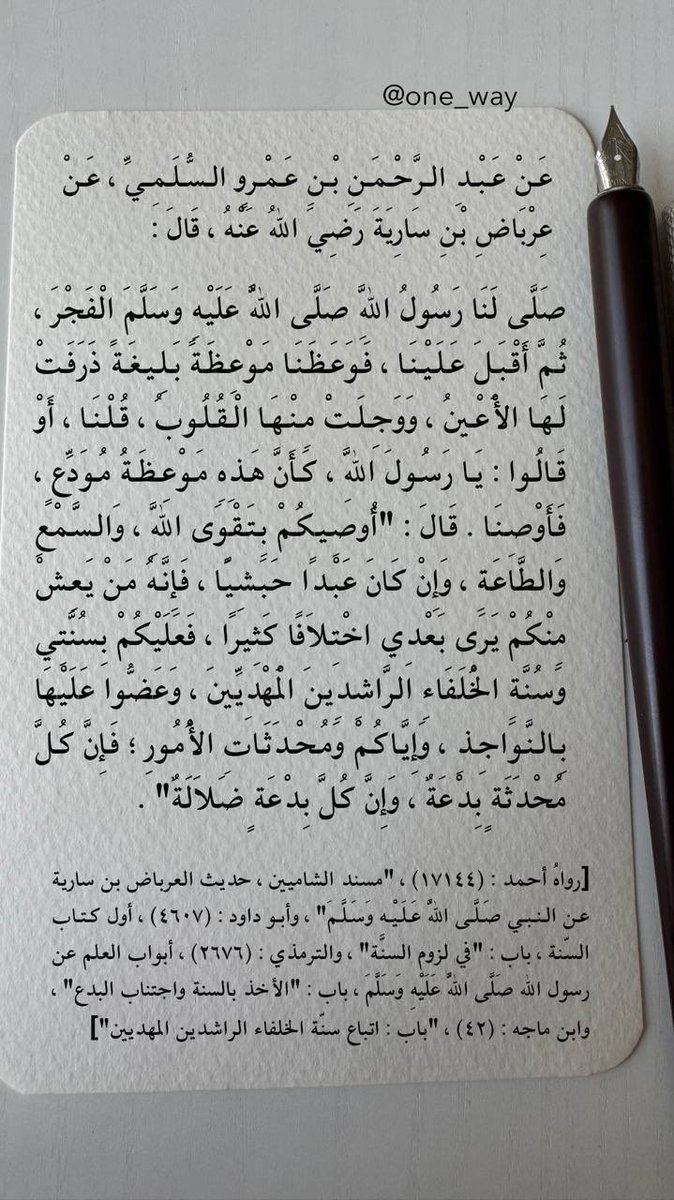 @one_way
عَنْ عَبْدِ الرَّحْمَنِ بْنِ عَمْرٍو السُّلَمِيِّ ، عَنْ
عِرْبَاضِ بْنِ سَارِيَةَ رَضِيَ اللهُ عَنْهُ ، قَالَ :
صَلَّى لَنَا رَسُولُ اللهِ صَلَّى اللهُ عَلَيْهِ وَسَلَّمَ الْفَجْرَ ،
ثُمَّ أَقْبَلَ عَلَيْنَا ، فَوَعَظَنَا مَوْعِظَةً بَلِيغَةً ذَرَفَتْ
لَهَا الأَعْيُنُ ، وَوَجِلَتْ مِنْهَا الْقُلُوبُ ، قُلْنَا ، أَوْ
قَالُوا : يَا رَسُولَ اللهِ ، كَأَنَّ هَذِهِ مَوْعِظَةُ مُوَدِّعٍ ،
فَأَوْصِنَا . قَالَ : "أُوصِيكُمْ بِتَقْوَى اللهِ ، وَالسَّمْعِ
وَالطَّاعَةِ ، وَإِنْ كَانَ عَبْدًا حَبَشِيًّا ، فَإِنَّهُ مَنْ يَعِشْ
مِنْكُمْ يَرَى بَعْدِي اخْتِلَافًا كَثِيرًا ، فَعَلَيْكُمْ بِسُنَّتِي
وَسُنَّةِ الْخُلَفَاءِ الرَّاشِدِينَ الْمَهْدِيِّينَ ، وَعَضُّوا عَلَيْهَا
بِالنَّوَاجِذِ ، وَإِيَّاكُمْ وَمُحْدَثَاتِ الأُمُورِ ؛ فَإِنَّ كُلَّ
مُحْدَثَةٍ بِدْعَةٌ ، وَإِنَّ كُلَّ بِدْعَةٍ ضَلَالَةٌ" .
[رواهُ أحمد : (١٧١٤٤) ، "مسند الشاميين ، حديث العرباض بن سارية
عن النبي صَلَّى اللهُ عَلَيْهِ وَسَلَّمَ" ، وأبو داود : (٤٦٠٧) ، أول كتاب
السنّة ، باب : "في لزوم السنَّة" ، والترمذي : (٢٦٧٦) ، أبواب العلم عن
رسول الله صَلَّى اللهُ عَلَيْهِ وَسَلَّمَ ، باب : "الأخذ بالسنة واجتناب البدع" ،
وابن ماجه : (٤٢) ، "باب : اتباع سنّة الخلفاء الراشدين المهديين"]